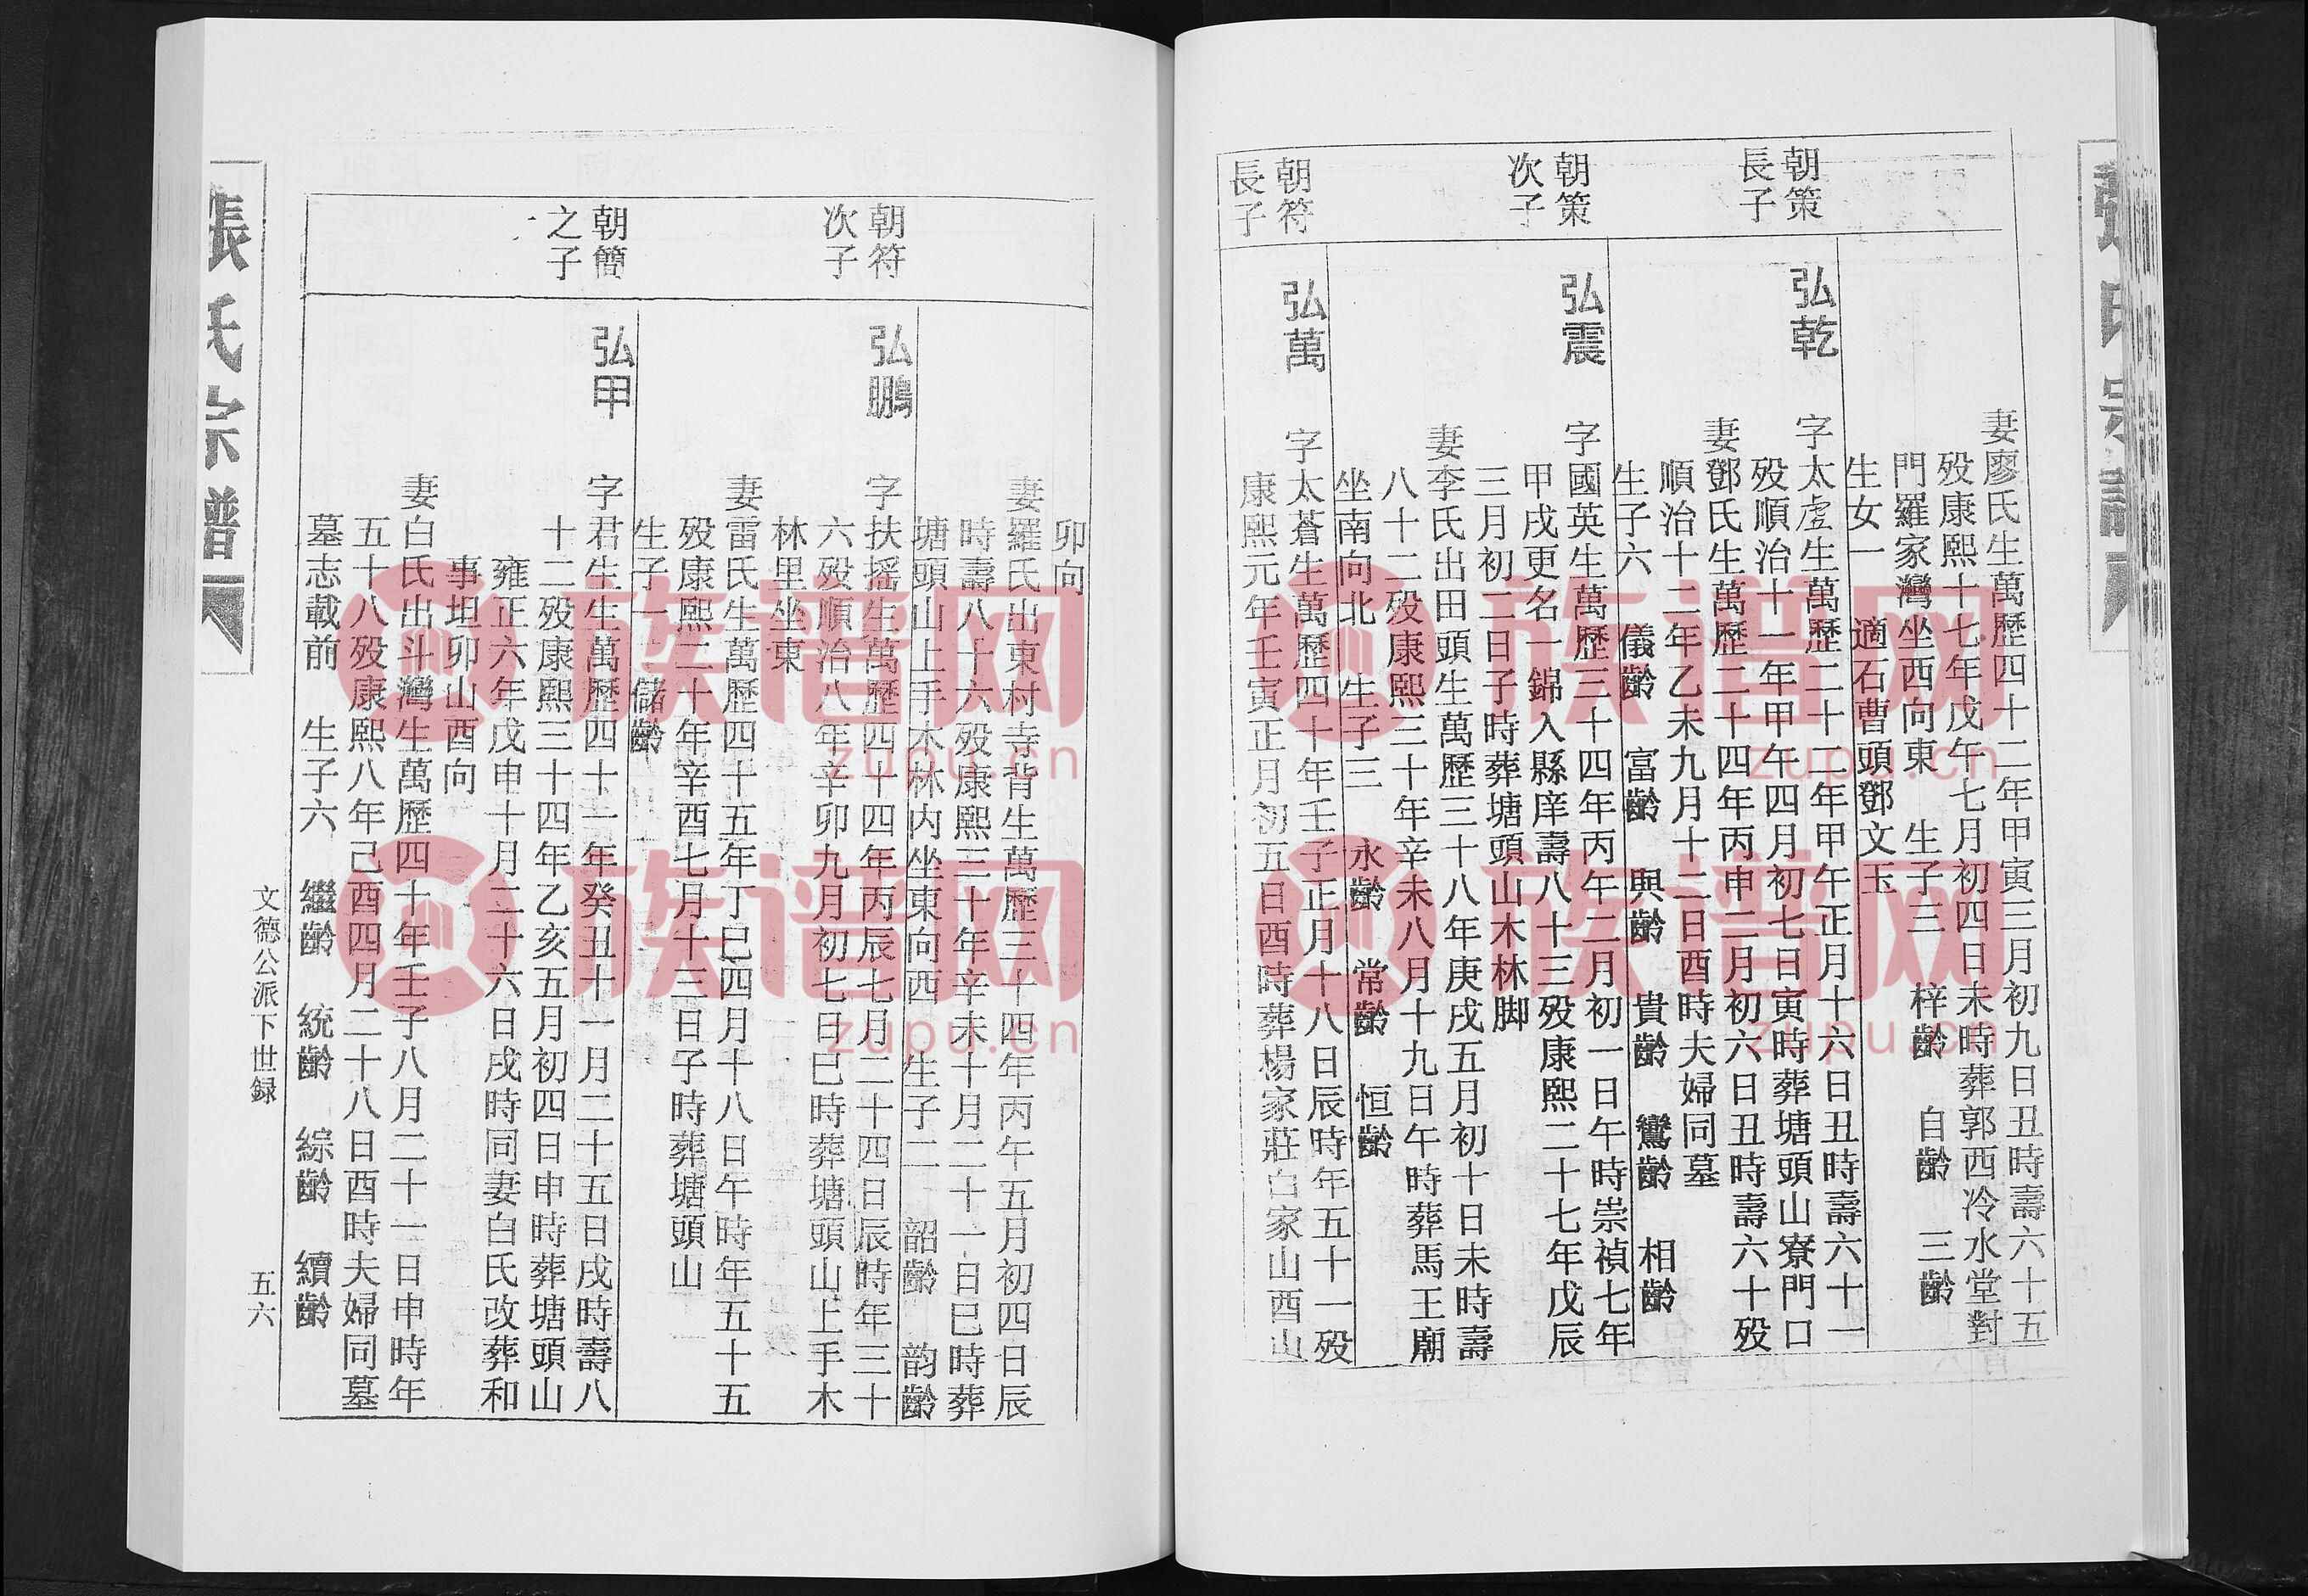 妻廖氏生萬歷四十二年甲寅三月初九日丑時壽六十五
殁康熙十七年戊午七月初四日未時葬郭西冷水堂對
門羅家灣坐西向東 生子三 梓齡 自齡 三齡
生女一 適石曹頭鄧文玉
朝策
長子
弘乾
字太虛生萬歷二十二年甲午正月十六日丑時壽六十一
殁順治十一年甲午四月初七日寅時葬塘頭山寮門口
妻鄧氏生萬歷二十四年丙申二月初六日丑時壽六十殁
順治十二年乙未九月十二日酉時夫婦同墓
生子六 儀齡 富齡 興齡 貴齡 鸞齡 相齡
朝策
次子
弘震
字國英生萬歷三十四年丙午二月初一日午時崇禎七年
甲戌更名一錦入縣庠壽八十三殁康熙二十七年戊辰
三月初二日子時葬塘頭山木林脚
妻李氏出田頭生萬歷三十八年庚戌五月初十日未時壽
八十二殁康熙三十年辛未八月十九日午時葬馬王廟
坐南向北 生子三 永齡 常齡 恒齡
朝符
長子
弘萬
字太蒼生萬歷四十年壬子正月十八日辰時年五十一殁
康熙元年壬寅正月初五日酉時葬楊家莊白家山酉山
卯向
妻羅氏出東村寺背生萬歷三十四年丙午五月初四日辰
時壽八十六殁康熙三十年辛未十月二十一日巳時葬
塘頭山上手木林内坐東向西 生子二 韶齡 韵齡
朝符
次子
弘鵬
字扶摇生萬歷四十四年丙辰七月二十四日辰時年三十
六殁順治八年辛卯九月初七日巳時葬塘頭山上手木
林里坐東
妻雷氏生萬歷四十五年丁巳四月十八日午時年五十五
殁康熙二十年辛酉七月十三日子時葬塘頭山
生子一 儲齡
朝簡
之子
弘甲
字君生生萬歷四十一年癸丑十一月二十五日戌時壽八
十二殁康熙三十四年乙亥五月初四日申時葬塘頭山
雍正六年戊申十月二十六日戌時同妻白氏改葬和
事坦卯山酉向
妻白氏出斗灣生萬歷四十年壬子八月二十一日申時年
五十八殁康熙八年己酉四月二十八日酉時夫婦同墓
墓志載前 生子六 繼齡 統齡 綜齡 續齡
張氏宗譜
文德公派下世録
五六
族谱网
zupu.cn
族谱网
zupu.cn
族谱网
zupu.cn
族谱网
zupu.cn